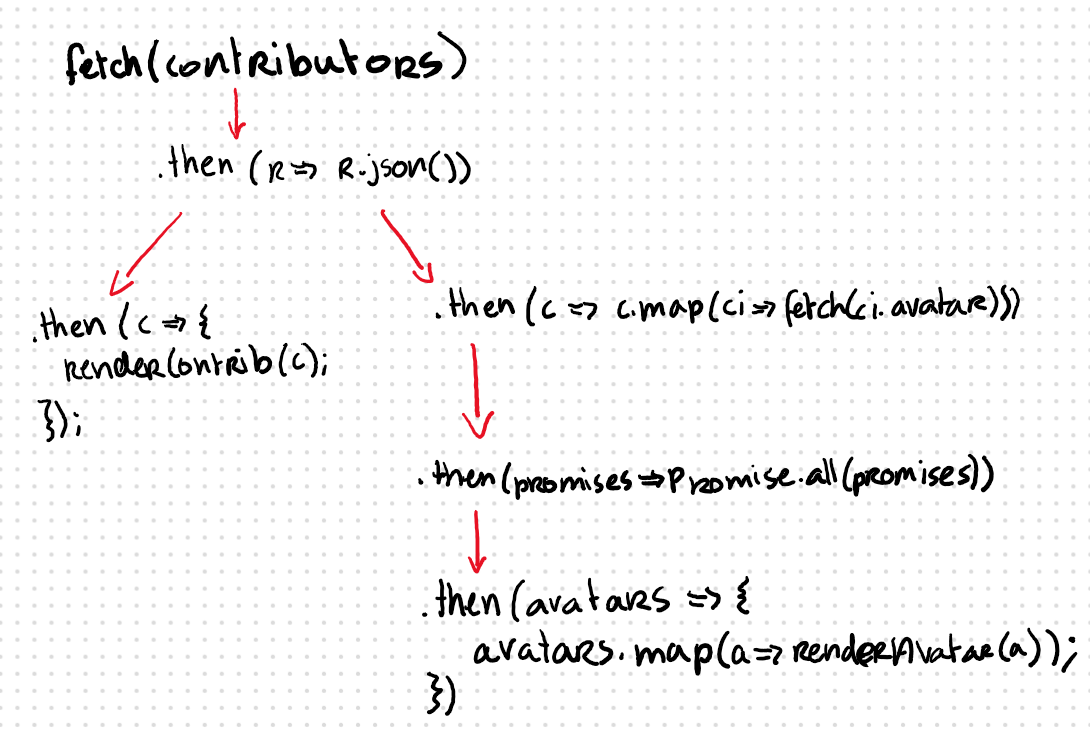 fetch(contributors)
.then(r => r.json())
.then(c => {
renderContrib(c);
});
.then(c => c.map(ci => fetch(ci.avatar)))
.then(promises => Promise.all(promises))
.then(avatars => {
avatars.map(a => renderAvatar(a));
})